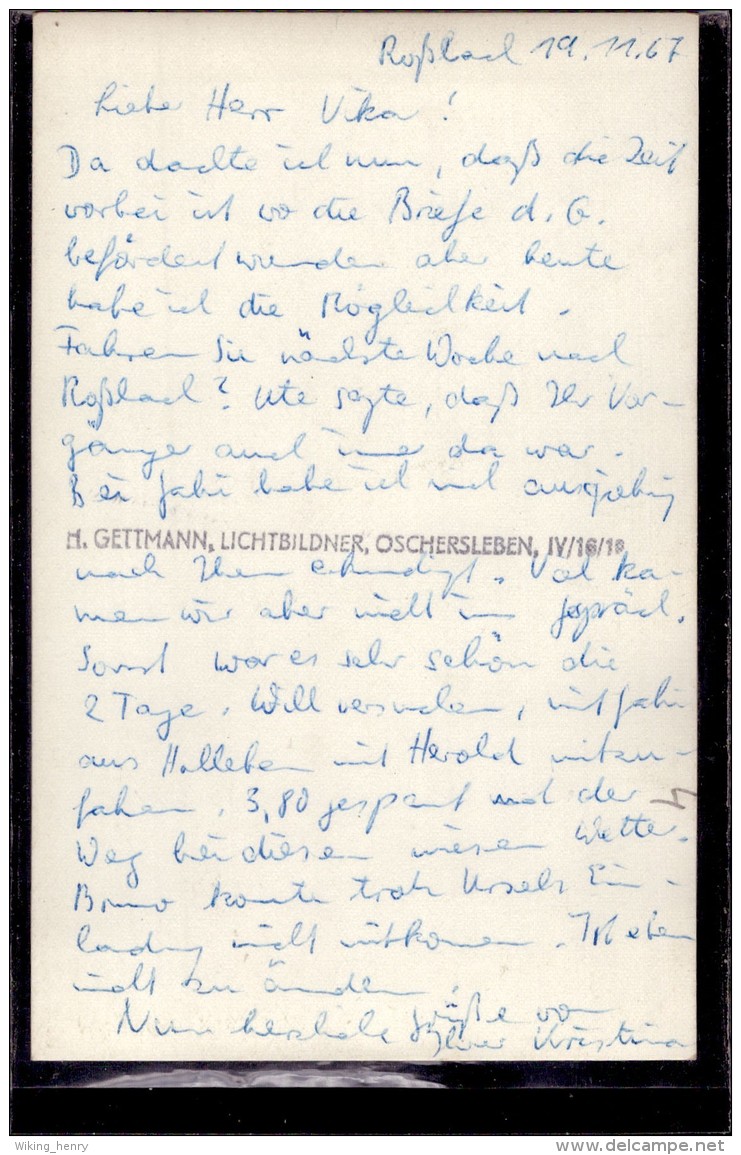 Roßbach 19.11.67
Liebe Herr Vika!
Da dachte ich nun, daß die Zeit
vorbei ist wo die Briefe d. G.
befördert wurden aber heute
habe ich die Möglichkeit.
Fahren Sie nächste Woche nach
Roßbach? Ute sagte, daß Ihr Vor-
gänger auch immer da war.
Bei habe ich mich ausgiebig
H. GETTMANN, LICHTBILDNER, OSCHERSLEBEN, IV/16/18
nach Ihnen erkundigt. Viel ka-
men wir aber nicht ins Gespräch.
Sonst war es sehr schön die
2 Tage. Will versuchen,
aus mit Herold mitzu-
fahren. 3,80 gespart und der
Weg bei diesem miesen Wetter.
Bruno konnte trotz Ursels Ein-
ladung nicht mitkommen. Ist eben
nicht zu ändern!
Nun herzliche Grüße von
Ihrer Kristina
Wiking_henry
www.delcampe.net